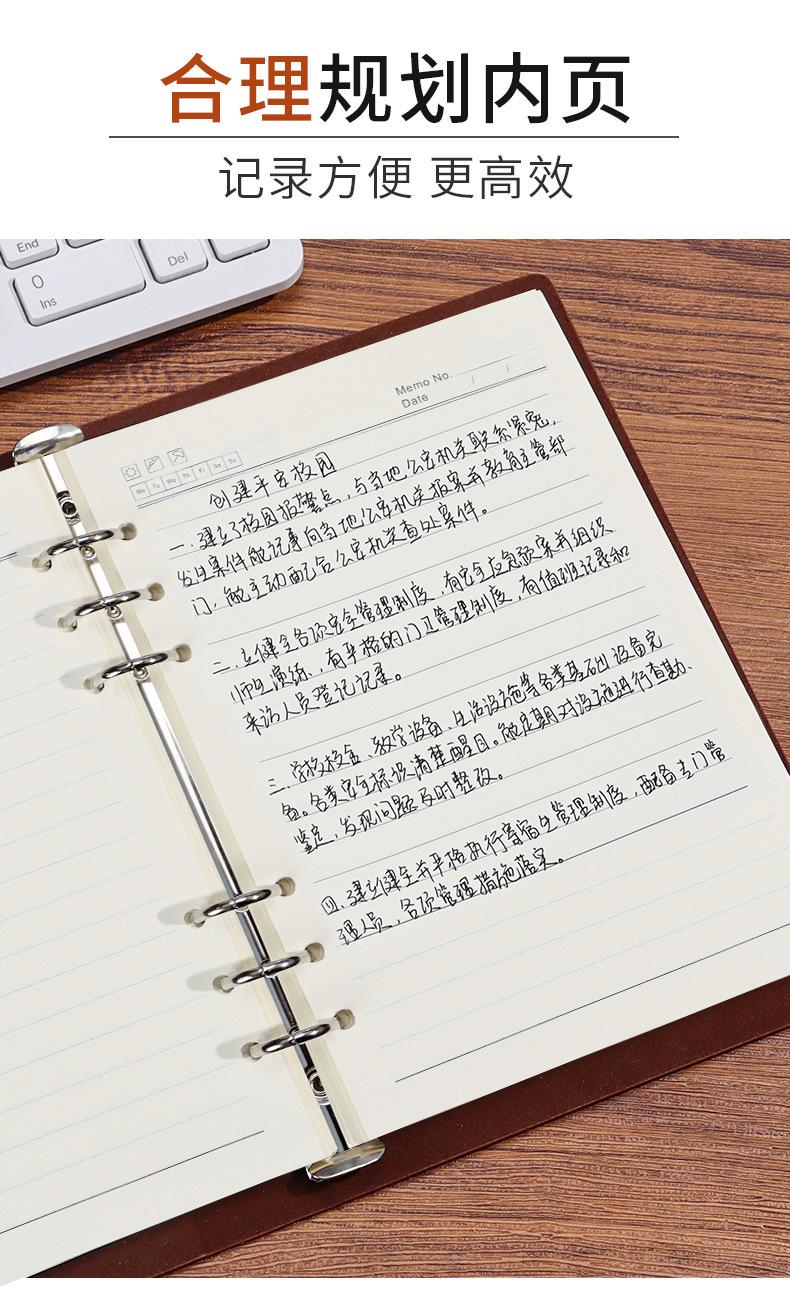 合理规划内页
记录方便 更高效
End
Del
0
Ins
Memo No.
Date / /
Mo Tu We Th Fr Sa Su
创建平安校园
一、建立了校园报警点，与当地公安机关联系紧密，
发生案件能记事向当地公安机关报案并教育主管部
门，能主动配合公安机关查处案件。
二、立健全各项安全管理制度，有安全应急预案并组织
师生演练，有严格的门卫管理制度，有值班记录和
来访人员登记记录。
三、学校校舍、教学设备、生活设施等各类基础设备完
备。各类安全标识清楚醒目。能定期对设施进行查勘、
鉴定，发现问题及时整改。
四、建立健全并严格执行寄宿生管理制度，配备专门管
理人员，各项管理措施落实。